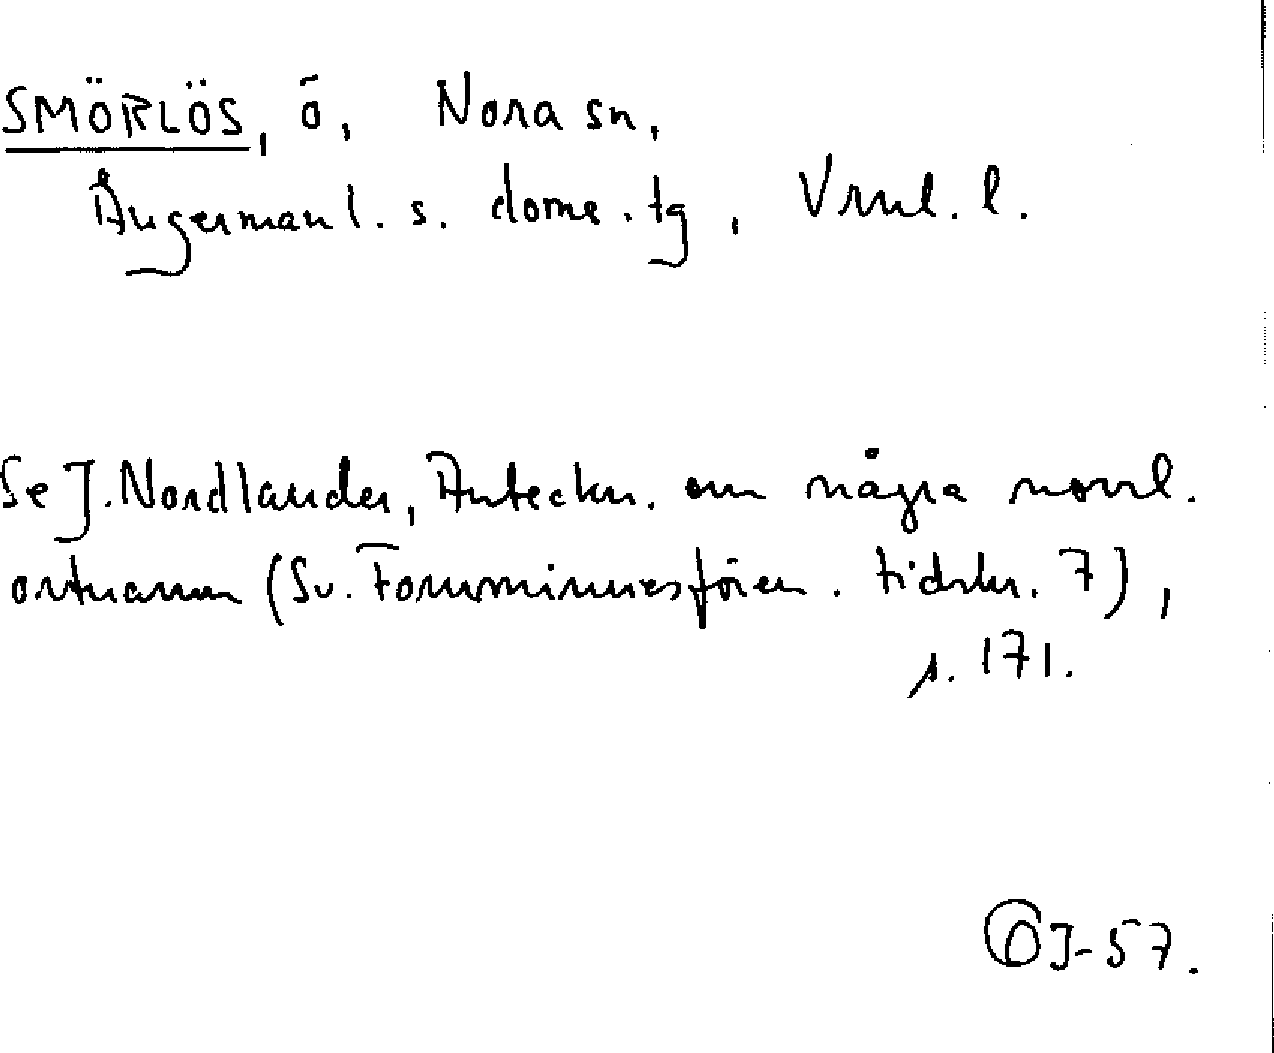 SMÖRLÖS, ö, Nora sn,
Ångermanl. s. doms. tg, Vrnl. l.
Se J. Nordlander, Anteckn. om några norrl.
ortnamn (Sv. Fornminnesfören. tidskr. 7),
s. 171.
OJ-57.